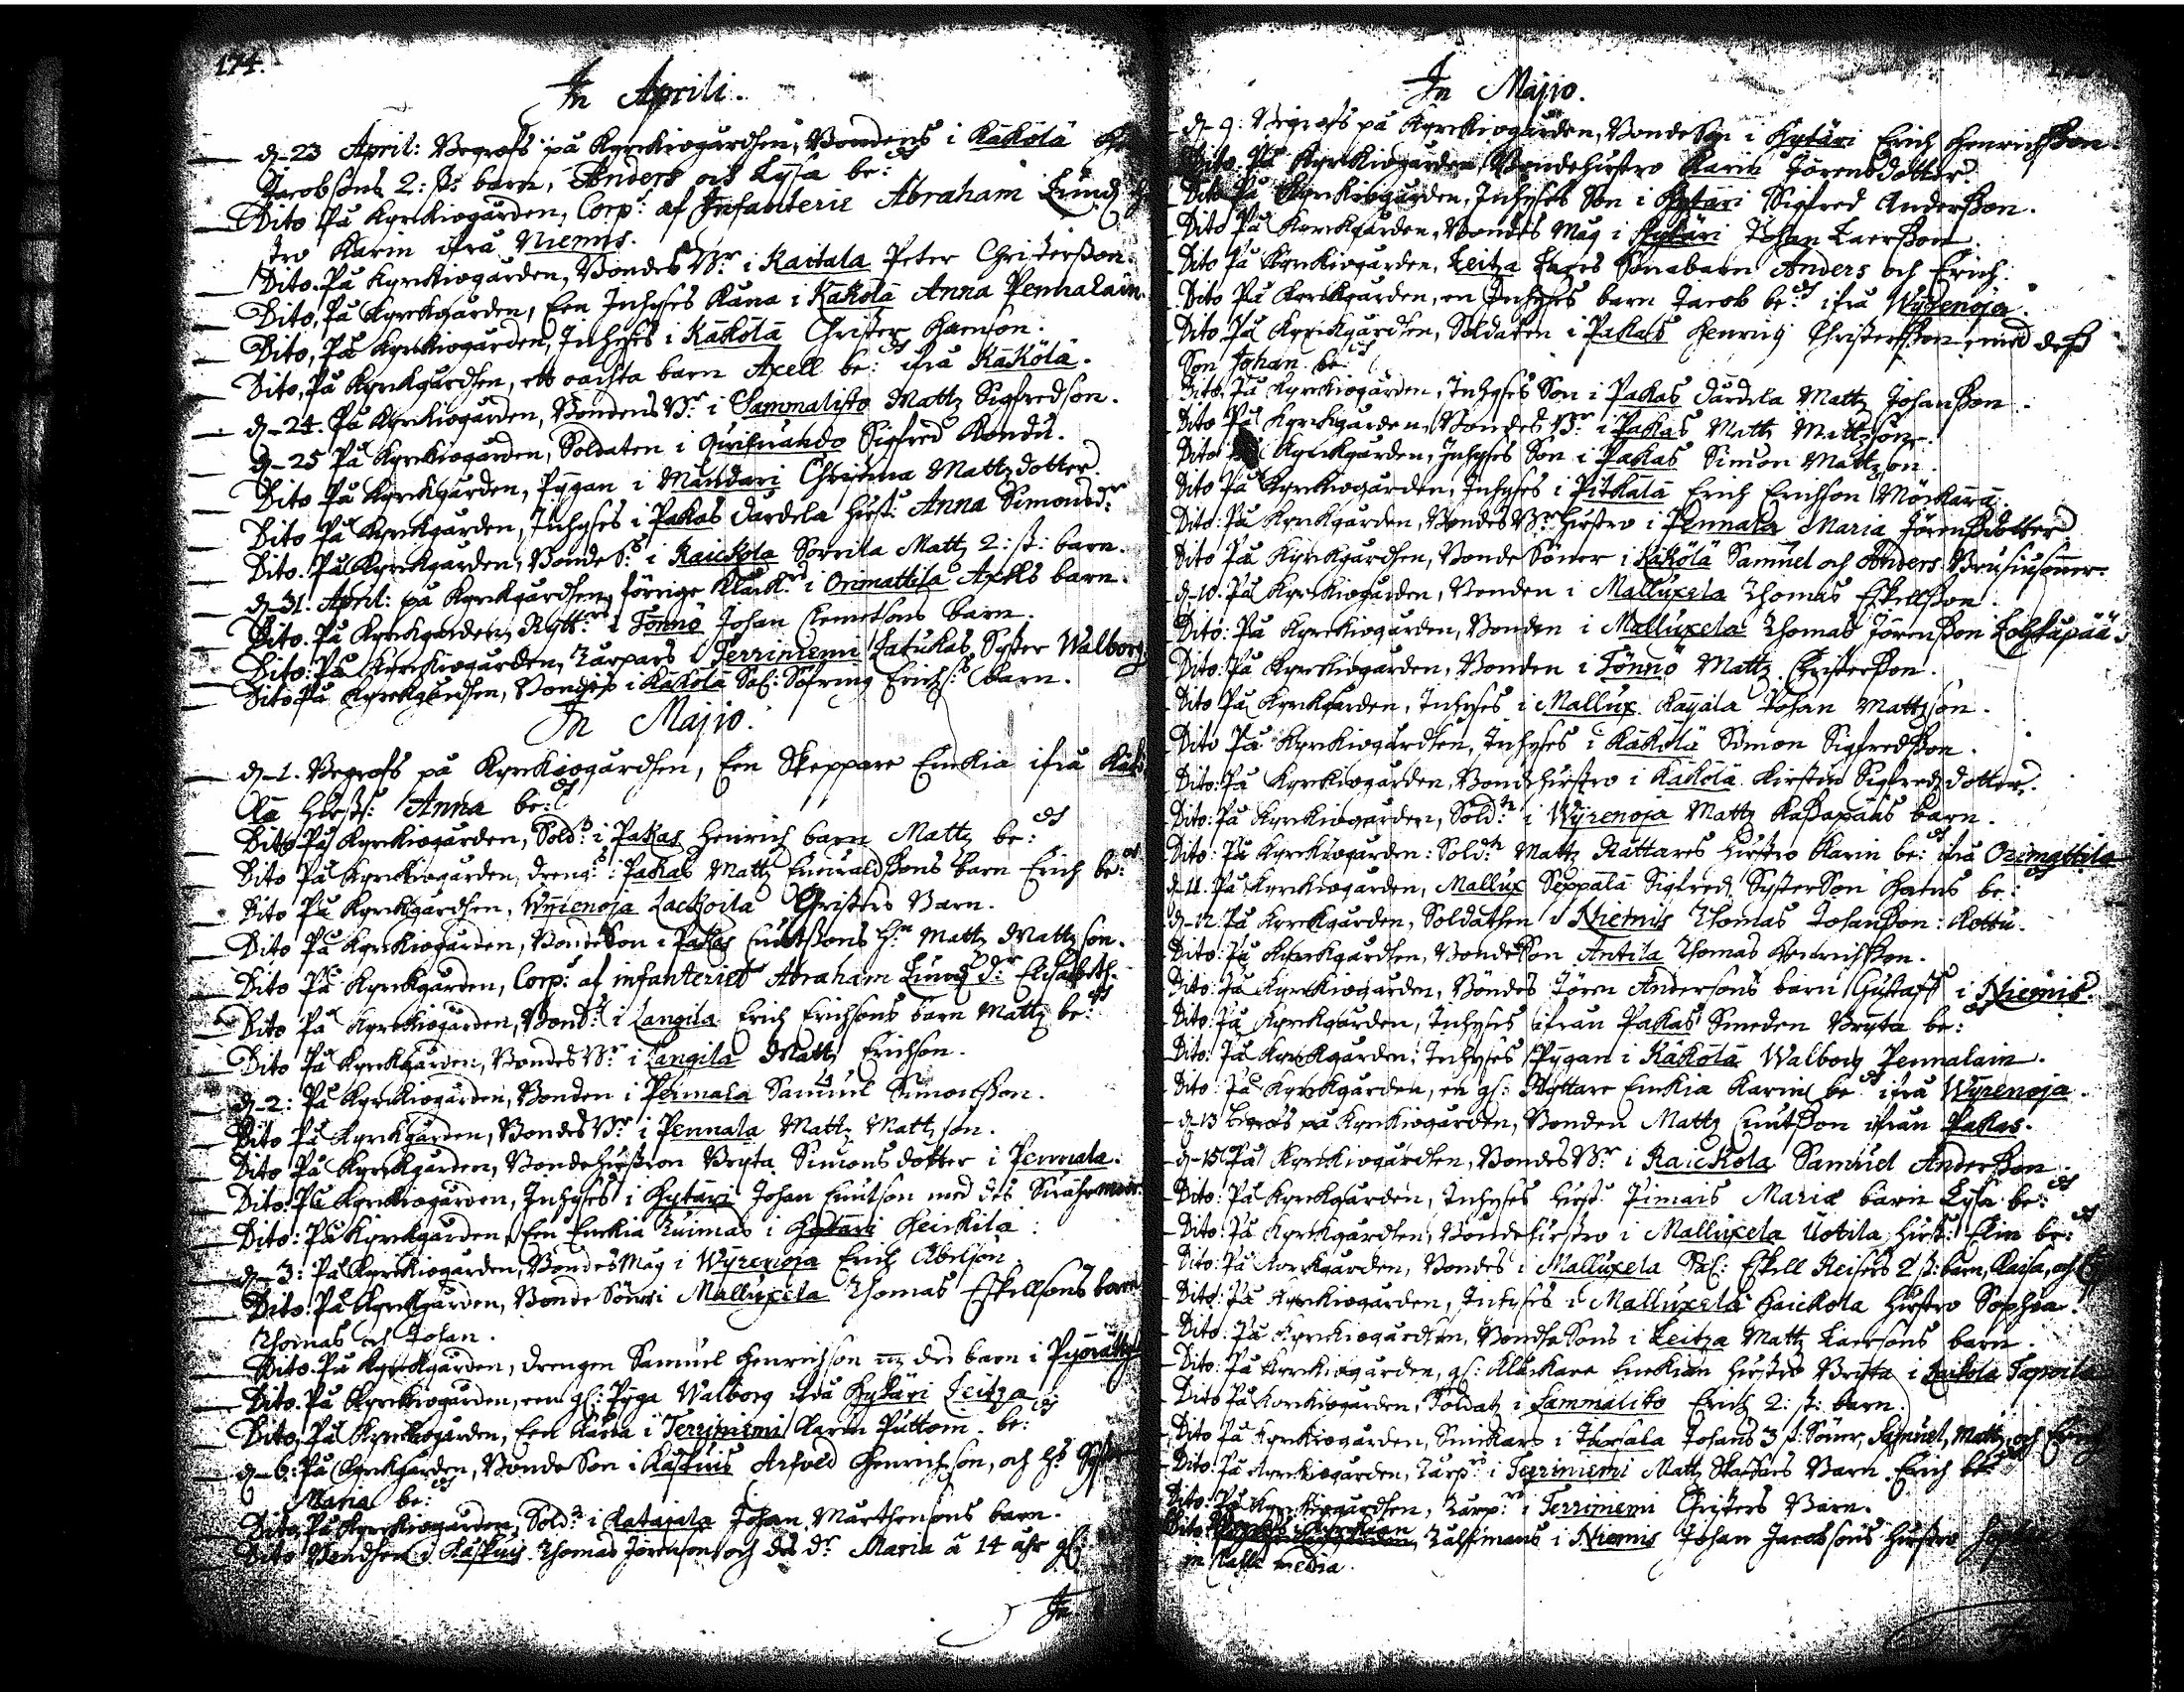 174.
In Aprili.
d. 23 April: Begrofs på Kyrkiogårdhen, Bondens i Käkölä
Jacobsons 2: st: barn, Anders och Lysa be:d
Dito På Kyrkiogården, Corp: af Infanterie Abraham Lund
tro Karin ifrå Niemis.
Dito. På Kyrkiogården, Bondes Br i Kaitala Peter Christersson.
Dito, På Kyrkgården, Een Inhyses Käna i Käkölä Anna Pennalain.
Dito, På Kyrkiogården, Inhyses i Käkölä Christer Hanson.
Dito, På Kyrkgårdhen, ett oächta barn Axell be:d ifrå Käkölä.
d. 24. På Kyrkiogården, Bondens Br i Sammalisto Mattz Sigfredson.
d. 25 På Kyrkiogården, Soldaten i Sigfred Kondu.
Dito På Kyrkgården, Pygan i Mändari Christina Mattzdotter.
Dito På Kyrkgården, Inhyses i Pakas Dardela Hust: Anna Simonsd:r
Dito. På Kyrkgården, Bonde S: i Raickola Sorrila Mattz 2: st: barn.
d. 31. April: på Kyrkgårdhen, förrige Klåck:rd i Orimattila Axells barn.
Dito. På Kyrkgården, Rytt:rs i Tönnö Johan Clemetsons barn.
Dito: På Kyrkiogården, Tarpars i Terriniemi Latukas Syster Walborg
Dito På Kyrkgårdhen, Bondes i Käkölä Sal: Söfring Erichs: barn.
In Majio.
d. 1. Begrofs på Kyrkiogårdhen, Een Skeppare Enckia ifrå Käkö
lä Anna be:d
Dito På Kyrkiogården, Sold: i Pakas Henrich barn Mattz be:d
Dito På Kyrkiogården, dreng: i Pakas Mattz barn Erich be:d
Dito På Kyrkgårdhen, Wyrenoja Lackoila Christers Barn.
Dito På Kyrkiogården, Bondeson i Pakas Knutssons Mattz Mattzson.
Dito På Kyrkgården, Corp: af infanteriet Abraham Lunds d:r Elisabeth.
Dito På Kyrkiogården, Bond: i Langila Erich Erichsons barn Mattz be:d
Dito På Kyrkgården, Bondes Br i Langila Mattz Erichson.
d. 2: På Kyrkiogården, Bonden i Pennala Samuel Simonsson.
Dito På Kyrkgården, Bondes Br i Pennala Mattz Mattzson.
Dito På Kyrkgården, Bondehustron Bryta Simonsdotter i Pennala.
Dito. På Kyrkiogården, Inhyses i Hytäri Johan Knutson med des Swährmoor.
Dito: På Kyrkgården, Een Enckia Tuimas i Hytäri Heickilä:
d. 3: På Kyrkiogården, Bondes Måg i Wyrenoja Erich Abelson
Dito. På Kyrkgården, Bonde Söner i Malluxela Thomas Eskellsons barn
Thomas och Johan.
Dito. På Kyrkgården, drengen Samuel Henrichson des barn i
Dito. På Kyrkiogården, een gl: Pyga Walborg ifrå Hytäri Leitza
Dito, På Kyrkiogården, Een Käna i Terriniemi Karin Puttoin be:d
d. 6: På Kyrkgården, Bonde Son i Käskuis Arfved Henrichson, och Syster
Maria be:d
Dito, På Kyrkiogården, Sold: i Ratajala Johan Marthensons barn.
Dito Bondhen i Käskuis Thomas Jörenson och des d:r Maria à 14 åhr gl:
In
In Majio.
d. 9: Begrofs på Kyrkiogården, Bondeson i Hytäri Erich Henrichsson
Dito. På Kyrkiogården, Bondehustro Karin Jörensdotter.
Dito På Kyrkiogården, Inhyses Son i Hytäri Sigfred Andersson.
Dito På Kyrkgården, Bondes Måg i Hytäri Johan Laersson.
Dito På Kyrkiogården, Leitza Lares Sonabarn Anders och Erich.
Dito På Kyrkgården, en Inhyses barn Jacob be:d ifrå Wyrenoja.
Dito På Kyrkgårdhen, Soldaten i Pakas Henrich Christersson, med dess
Son Johan be:d
Dito, På Kyrkiogården, Inhyses Son i Pakas Dardela Mattz Johansson.
Dito På Kyrkgården, Bondes Br i Pakas Mattz Mattzson.
Dito På Kyrkgården, Inhyses Son i Pakas Simon Mattzson.
Dito På Kyrkiogården, Inhyses i Pitkälä Erich Erichson Mörkärä.
Dito: På Kyrkgården, Bondes Br Hustro i Pennala Maria Jörensdotter
Dito På Kyrkgårdhen, Bonde Söner i Käkölä Samuel och Anders
d. 10. På Kyrkiogården, Bonden i Malluxela Thomas Eskellsson.
Dito: På Kyrkiogården, Bonden i Malluxela Thomas Jörensson
Dito: På Kyrkiogården, Bonden i Tönnö Mattz Christersson.
Dito På Kyrkgården, Inhyses i Mallux Kayala Johan Mattzson.
Dito På Kyrkiogårdhen, Inhyses i Käkölä Simon Sigfredsson.
Dito: På Kyrkiogården, Bondehustro i Käkölä Kirstin Sigfredzdotter.
Dito: På Kyrkiogården, Sold:n i Wyrenoja Mattz Kassapääs barn.
Dito: På Kyrkiogården: Sold:n Mattz Rättares Hustro Karin be:d ifrå Orimattila
d. 11. På Kyrkiogården, Mallux Seppälä Sigfreds Systerson Hans be:d
d. 12. På Kyrkgården, Soldathen i Niemis Thomas Johansson: Kottu.
Dito: På Kyrkgårdhen, Bondeson Antila Thomas Henrichsson.
Dito: På Kyrkiogården, Bondes Jören Andersons barn Gustaff i Niemis.
Dito: På Kyrkgården, Inhyses ifrån Pakas Smeden Bryta be:d
Dito: På Kyrkgården, Inhyses Pygan i Käkölä Walborg Pennalain.
Dito: På Kyrkgården, en gl: Ryttare Enckia Karin be:d ifrå Wyrenoja.
d. 13 Begrofs på Kyrkiogården, Bonden Mattz Knutsson ifrån Pakas.
d. 15 På Kyrkiogårdhen, Bondes Br i Raickola Samuel Andersson
Dito: På Kyrkgården, Inhyses Hust: Pimais Mariæ barn Lysa be:d
Dito: På Kyrkgårdhen, Bondehustro i Malluxela Uotila, Hust: Elin be:d
Dito: På Kyrkgården, Bondes i Malluxela Sal: Eskell Reisers 2 st: barn, Kaisa, och
Dito: På Kyrkiogården, Inhyses i Malluxela Haickola Hustro Sophia.
Dito: På Kyrkiogårdhen, Bondhe Sons i Leitza Mattz Laersons barn.
Dito: På Kyrkiogården, gl: Klåckare Enckian Hustro Bryta i Käikölä
Dito På Kyrkiogården, Soldatz i Sammalisto Erich 2: st: barn.
Dito På Kyrkiogården, Snickars i Tursala Johans 3 st: Söner, Samuel, Mattz, och
Dito: På Kyrkiogården, Tarp:s i Terriniemi Mattz Barn Erich be:d
Dito: På Kyrkiogårdhen, Tarp:rs i Terriniemi Christers Barn.
Dito: i Kyrckian Tålffmans i Niemis Johan Jacobsons Hustro
media.